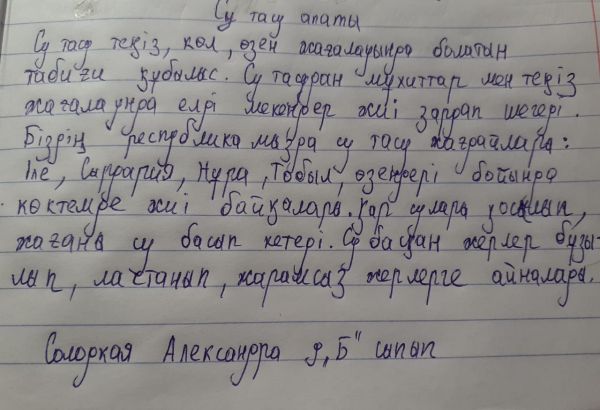 Су тасу апаты
Су тасу теңіз, көл, өзен жағалауында болатын
табиғи құбылыс. Су тасудан мұхиттар мен теңіз
жағалаунда елді мекендер жиі зардап шегеді.
Біздің республикамызда су тасу жағдайлары:
Іле, Сырдария, Нұра, Тобыл, өзендері бойында
көктемде жиі байқалады. Қар сулары қосылып,
жағаны су басып кетеді. Су басқан жерлер бұзы-
лып, ластанып, жарамсыз жерлерге айналады.
Солодкая Александра 9 „Б" сынып